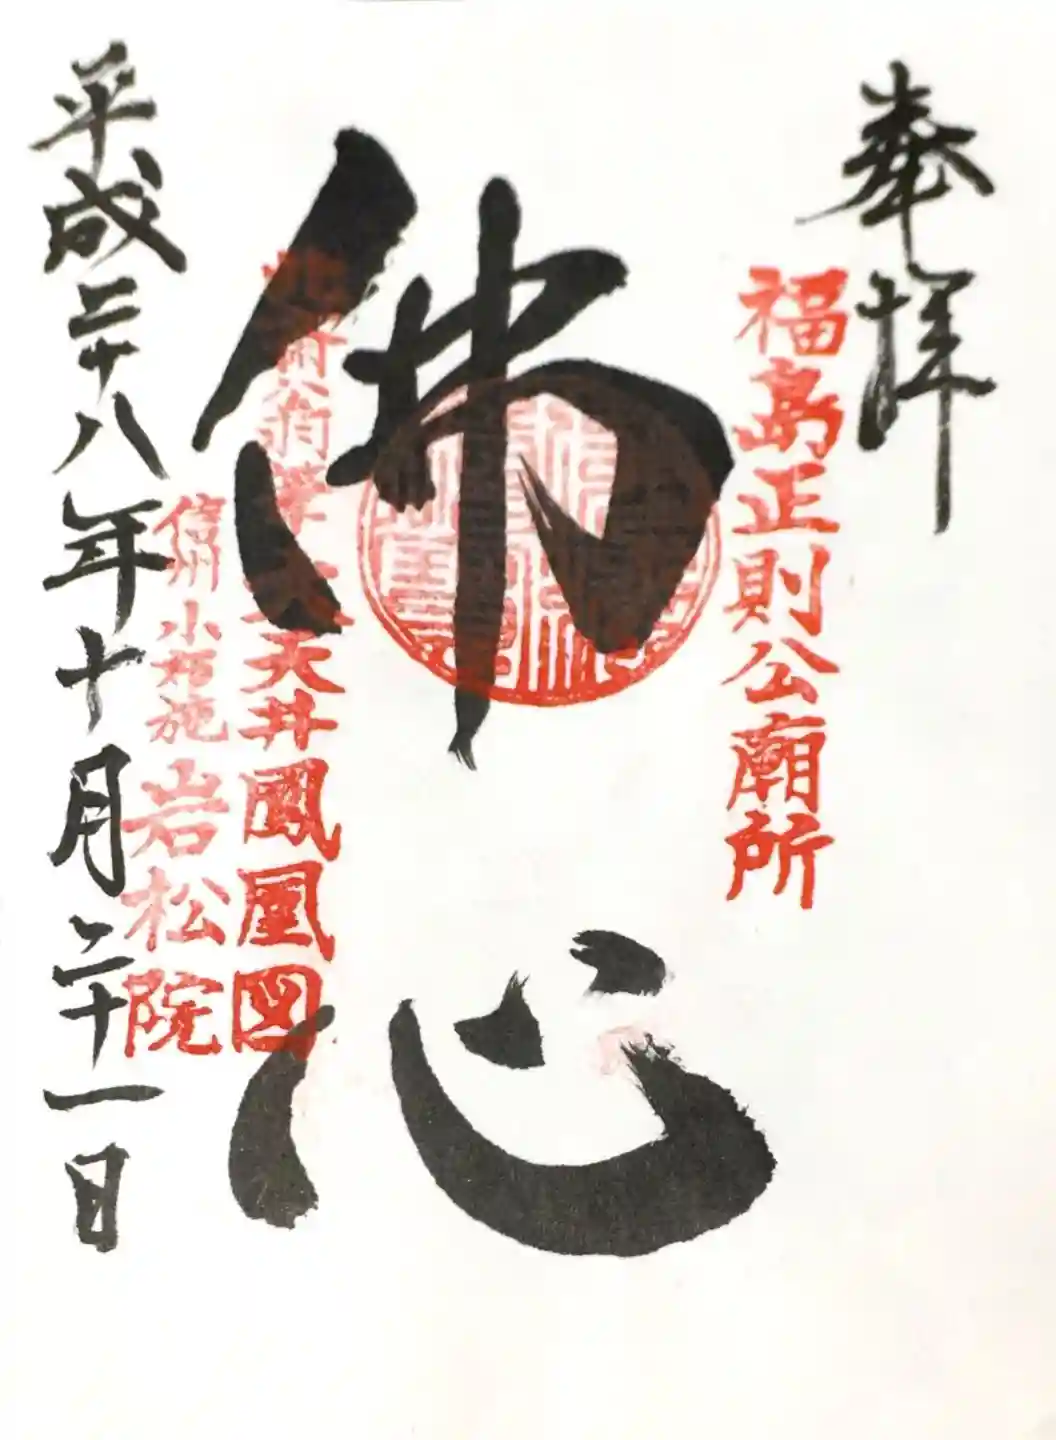 奉拝
福島正則公廟所
佛心
北斎公翁筆 大天井鳳凰図
信州小布施岩松院
平成二十八年十月二十一日